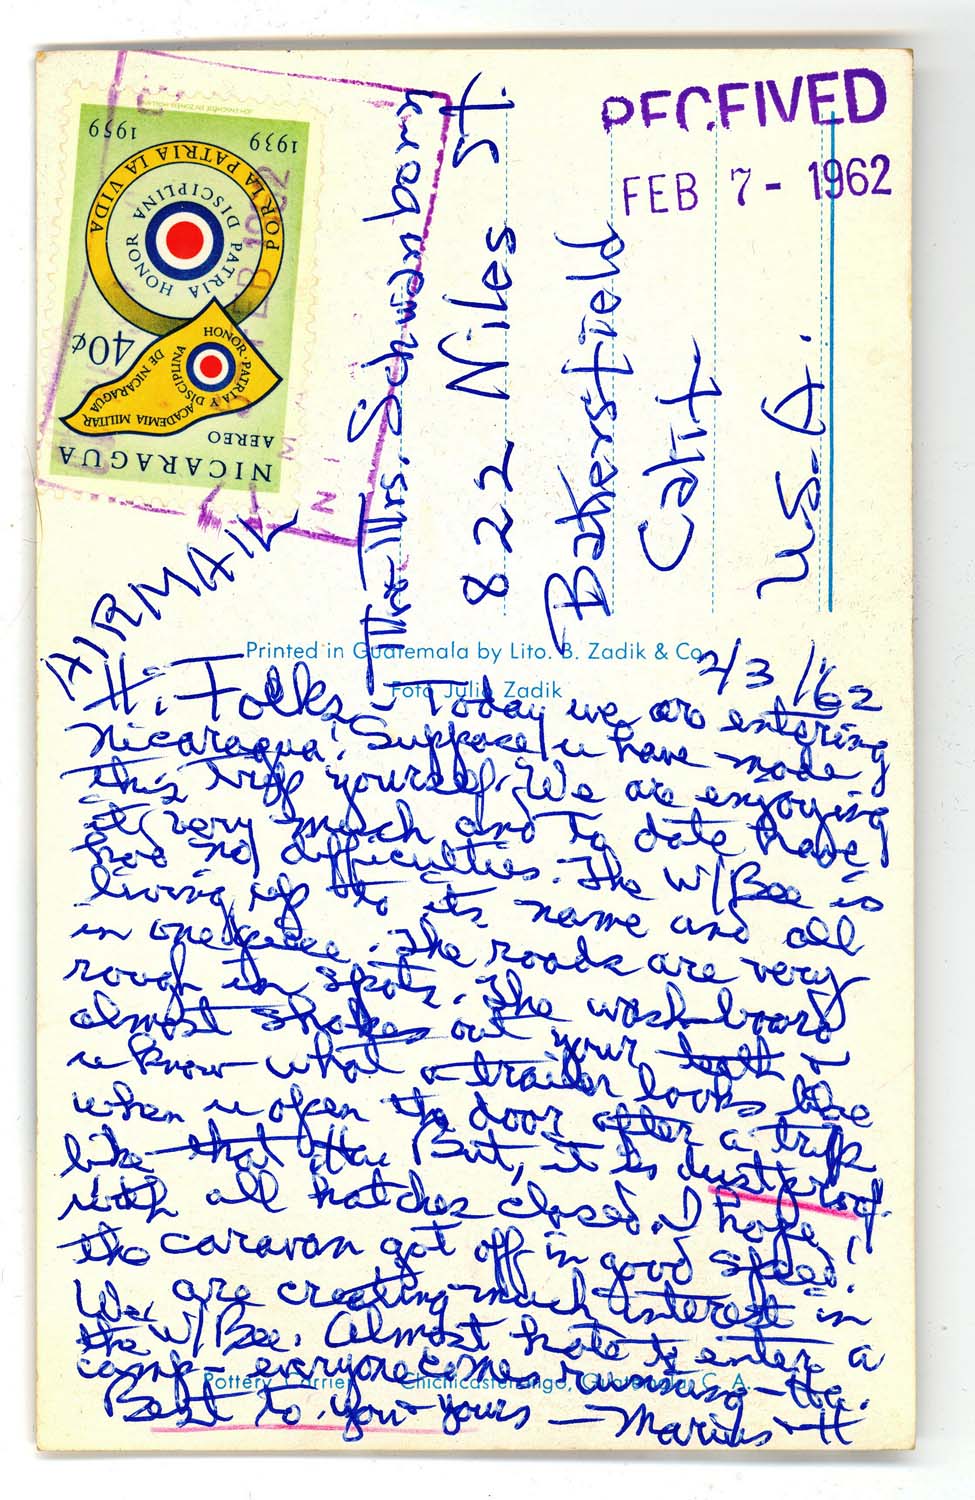 RECEIVED
FEB 7- 1962
1939 1959
POR LA PATRIA LA VIDA
PATRIA HONOR DISCIPLINA
40¢
HONOR·PATRIA Y DISCIPLINA
ACADEMIA MILITAR DE NICARAGUA
AEREO
NICARAGUA
AIRMAIL
Mrs. Schwanborn
822 Niles St.
Bakersfield
Calif
U.S.A.
Printed in Guatemala by Lito. B. Zadik & Co.
Foto Julio Zadik
2/3/'62
Hi Folks, Today we are entering
Nicaragua! Suppose u have made
this trip yourself. We are enjoying
it very much and to date have
had no difficulties. The W/Bee is
living up to its name and all
in one piece. The roads are very
rough in spots. The wash-board
almost shakes out your teeth &
u know what a trailer looks like
when u open the door after a trip
like that. But, it is dustproof
with all hatches closed. I hope
the caravan got off in good shape!
We are creating much interest in
the W/Bee. Almost hate to enter a
camp - everyone comes running - Ha.
Best to you - yours - Marius + H
Pottery Carrier Chichicastenango, Guatemala, C. A.